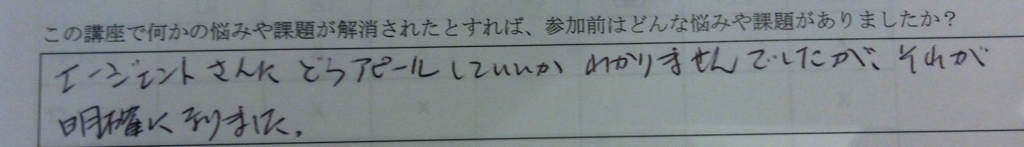 この講座で何かの悩みや課題が解消されたとすれば、参加前はどんな悩みや課題がありましたか？
エージェントさんに どうアピール していいか わかりませんでしたが、それが
明確になりました。